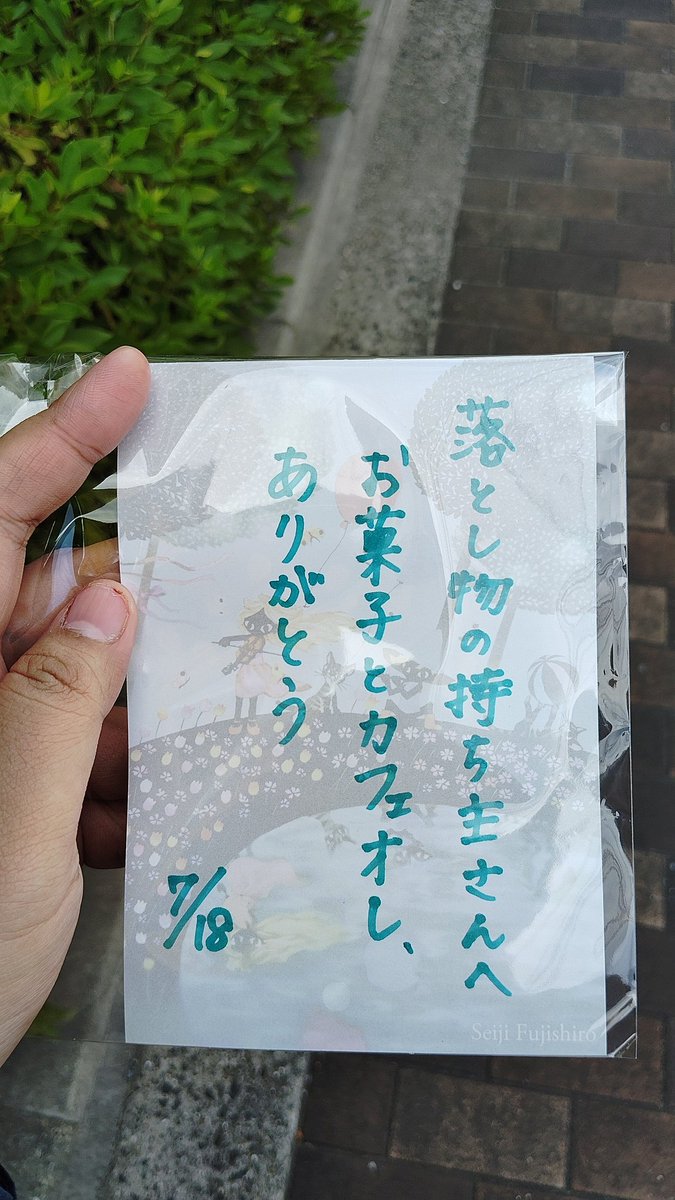 落とし物の持ち主さんへ
お菓子とカフェオレ、
ありがとう
7/18
Seiji Fujishiro